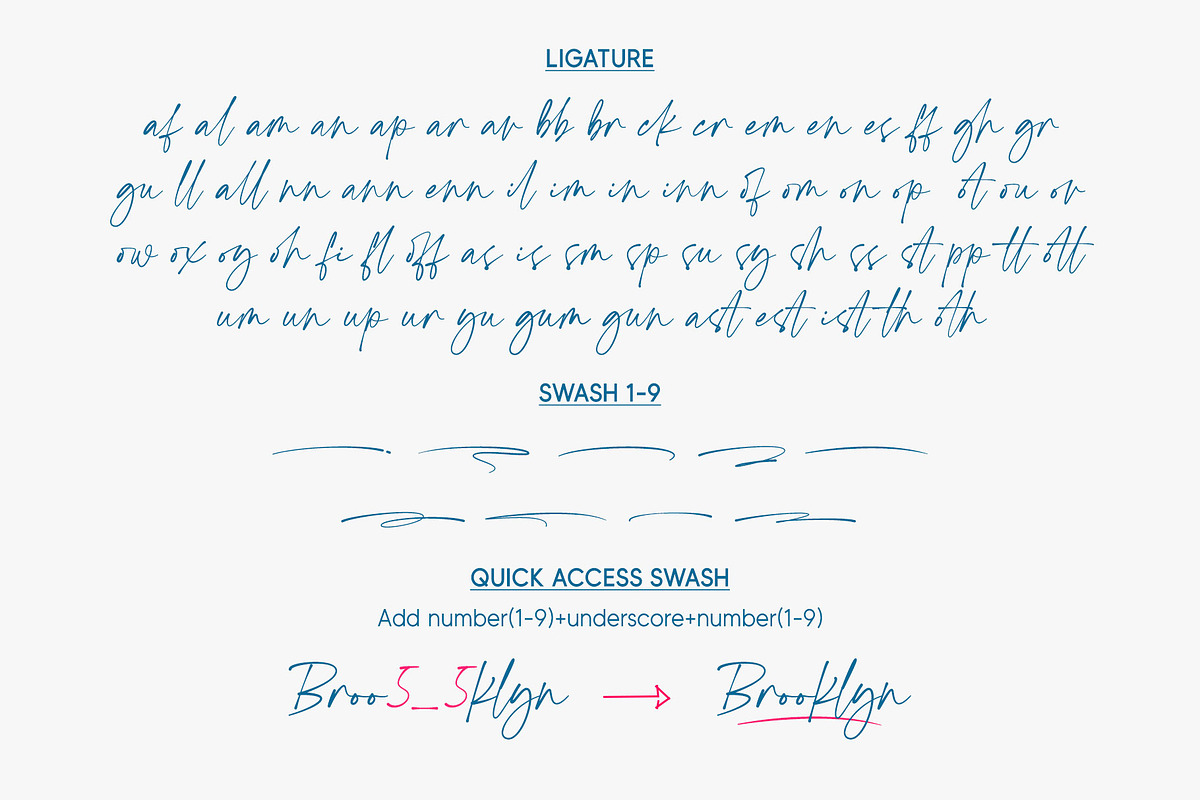 LIGATURE
af al am an ap ar av bb br ck cr em en es ff gh gr
gu ll all nn ann enn il im in inn of om on op ot ou or
ow ox oy oh fi fl off as is sm sp su sy sh ss st pp tt ott
um un up ur yu gum gun ast est ist th oth
SWASH 1-9
QUICK ACCESS SWASH
Add number(1-9)+underscore+number(1-9)
Broo5_5klyn → Brooklyn